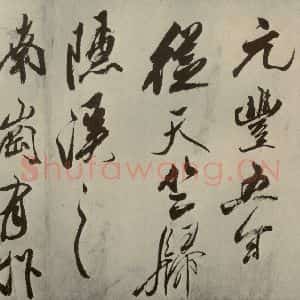 元豐五年
從天竺歸
隱溪之
南嵓有
Shufawang.CN